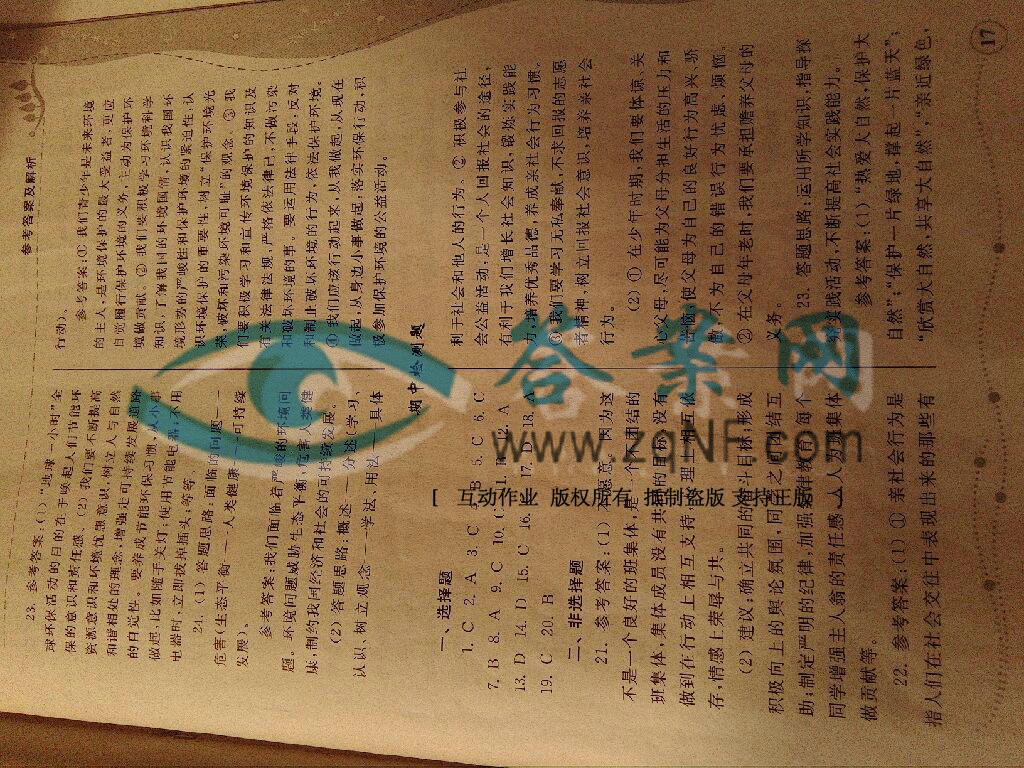 参考答案及解析
23. 参考答案:(1)“地球一小时”全
球环保活动的目的在于唤起人们节能环
保的意识和责任感。(2)我们要不断提高
资源意识和环境忧患意识,树立人与自然
和谐相处的理念,增强走可持续发展道路
的自觉性。要养成节能环保习惯,从小事
做起,比如随手关灯;使用节能电器;不用
电器时,立即拔掉插头;等等。
24. (1)答题思路:面临的问题——
危害(生态平衡——人类健康——可持续
发展)。
参考答案:我们面临着严峻的环境问
题。环境问题威胁生态平衡,危害人类健
康,制约我国经济和社会的可持续发展。
(2)答题思路:概述——分述(学习、
认识、树立观念——学法、用法——具体
行动)。
参考答案:①我们青少年是未来环境
的主人,是环境保护的最大受益者,更应
自觉履行保护环境的义务,主动为保护环
境做贡献。②我们要积极学习环境科学
知识,了解我国的环境国情,认识我国环
境形势的严峻性和保护环境的紧迫性,认
识环境保护的重要性,树立“保护环境光
荣,破坏和污染环境可耻”的观念。③我
们要积极学习和宣传环境保护的知识及
有关法律法规,严格依法律己,不做污染
和破坏环境的事。要运用法律手段,反对
和制止破坏环境的行为,依法保护环境。
④我们应该行动起来,从我做起,从现在
做起,从身边小事做起,落实环保行动,积
极参加保护环境的公益活动。
期中检测题
一、选择题
1. C 2. A 3. C 4. B 5. C 6. C
7. B 8. A 9. C 10. C 11. B 12. A
13. D 14. D 15. C 16. 17. D 18. A
19. C 20. B
二、非选择题
21. 参考答案:(1)不愿意。因为这
不是一个良好的班集体,是一个不团结的
班集体,集体成员没有共同的目标,没有
做到在行动上相互支持,心理上相互依
存,情感上荣辱与共。
(2)建议:确立共同的奋斗目标;形成
积极向上的舆论氛围,同学之间团结互
助;制定严明的纪律,加强纪律教育;每个
同学增强主人翁的责任感,人人为班集体
做贡献等。
22. 参考答案:(1)①亲社会行为是
指人们在社会交往中表现出来的那些有
利于社会和他人的行为。②积极参与社
会公益活动,是一个人回报社会的途径,
有利于我们增长社会知识,锻炼实践能
力,培养优秀品德,养成亲社会行为习惯。
③我们要学习无私奉献,不求回报的志愿
者精神,树立回报社会意识,培养亲社会
行为。
(2)①在少年时期,我们要体谅、关
心父母,尽可能为父母分担生活的压力和
苦恼,使父母为自己的良好行为高兴、骄
傲,不为自己的错误行为忧虑、烦恼。
②在父母年老时,我们要承担赡养父母的
义务。
23. 答题思路:运用所学知识,指导探
究实践活动,不断提高社会实践能力。
参考答案:(1)“热爱大自然,保护大
自然”;“保护一片绿地,撑起一片蓝天”;
“欣赏大自然,共享大自然”,“亲近绿色,
17
答案网
www.zqNF.com
[ 互动作业 版权所有 抵制盗版 支持正版 ]